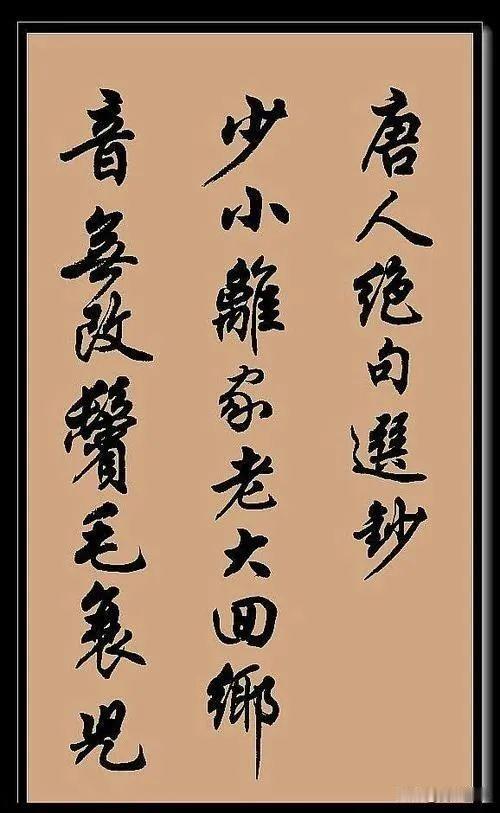 唐人绝句選鈔
少小離家老大回鄉
音無改鬢毛衰兒